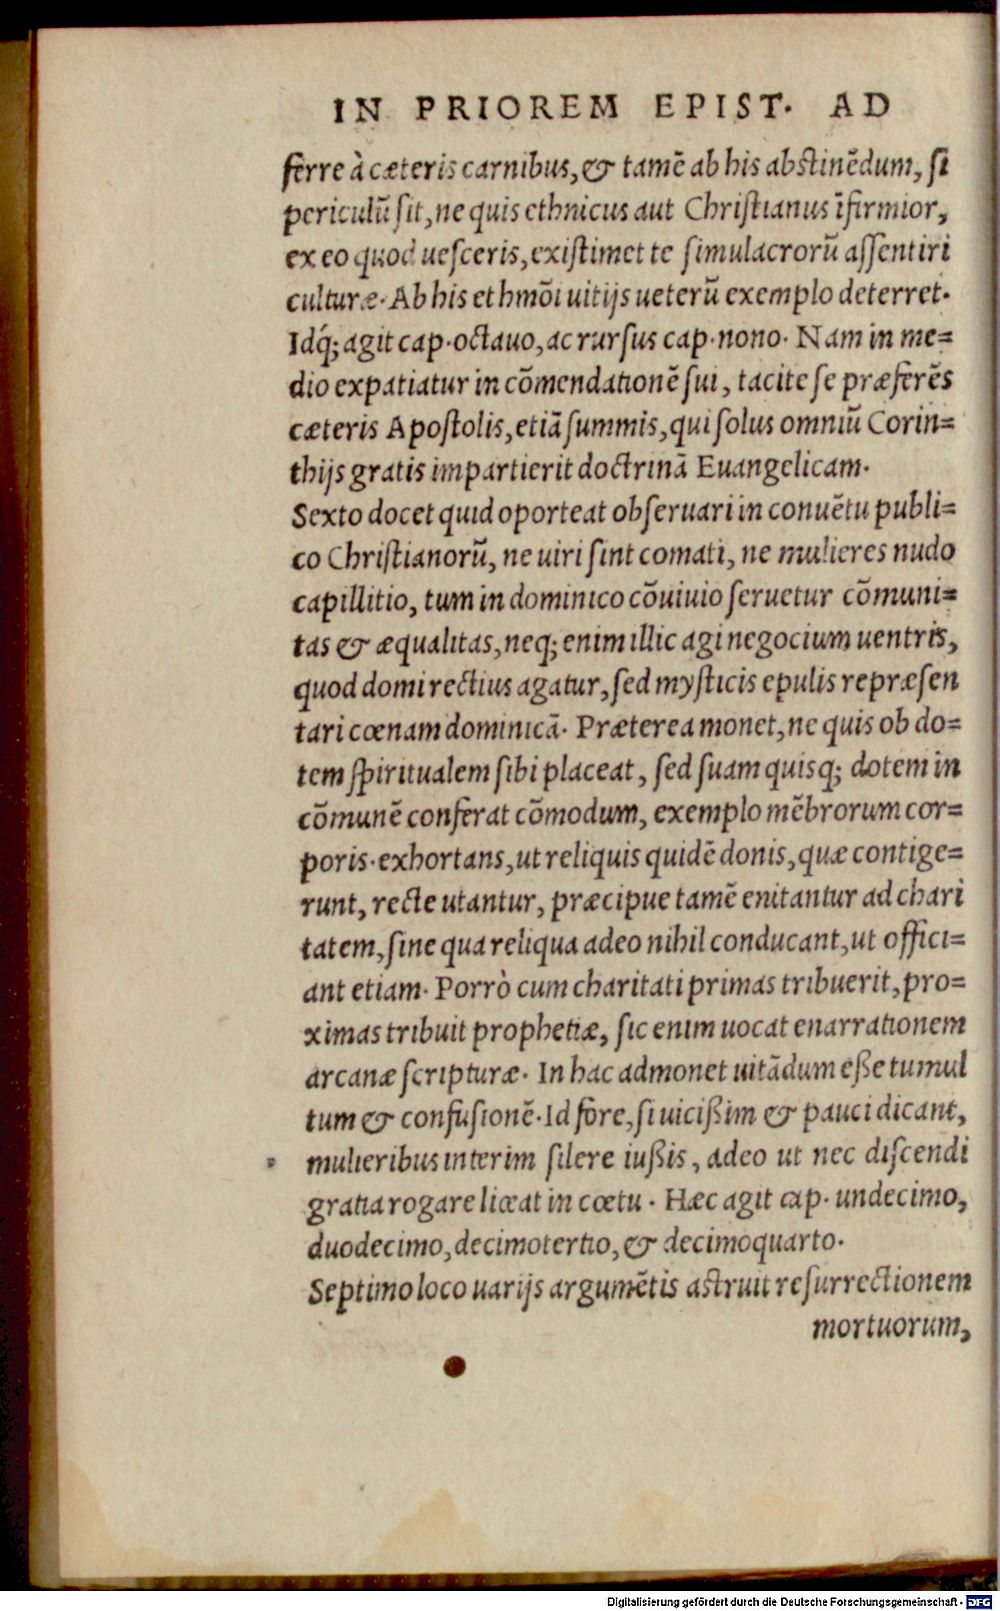 IN PRIOREM EPIST. AD
ferre à cæteris carnibus, & tamē ab his abstinēdum, si
periculū sit, ne quis ethnicus aut Christianus īfirmior,
ex eo quod uesceris, existimet te simulacrorū assentiri
culturæ. Ab his et hmōi uitijs ueterū exemplo deterret.
Idq́; agit cap. octauo, ac rursus cap. nono. Nam in me=
dio expatiatur in cōmendationē sui, tacite se præferēs
cæteris Apostolis, etiā summis, qui solus omniū Corin=
thijs gratis impartierit doctrinā Euangelicam.
Sexto docet quid oporteat obseruari in conuētu publi=
co Christianorū, ne uiri sint comati, ne mulieres nudo
capillitio, tum in dominico cōuiuio seruetur cōmuni=
tas & æqualitas, neq; enim illic agi negocium uentris,
quod domi rectius agatur, sed mysticis epulis repræsen
tari cœnam dominicā. Præterea monet, ne quis ob do=
tem spiritualem sibi placeat, sed suam quisq; dotem in
cōmunē conferat cōmodum, exemplo mēbrorum cor=
poris. exhortans, ut reliquis quidē donis, quæ contige=
runt, recte utantur, præcipue tamē enitantur ad chari
tatem, sine qua reliqua adeo nihil conducant, ut offici=
ant etiam. Porrò cum charitati primas tribuerit, pro=
ximas tribuit prophetiæ, sic enim uocat enarrationem
arcanæ scripturæ. In hac admonet uitādum eße tumul
tum & confusionē. Id fore, si uicißim & pauci dicant,
mulieribus interim silere iußis, adeo ut nec discendi
gratia rogare liceat in cœtu. Hæc agit cap. undecimo,
duodecimo, decimotertio, & decimoquarto.
Septimo loco uarijs argumētis astruit resurrectionem
mortuorum,
Digitalisierung gefördert durch die Deutsche Forschungsgemeinschaft - DFG